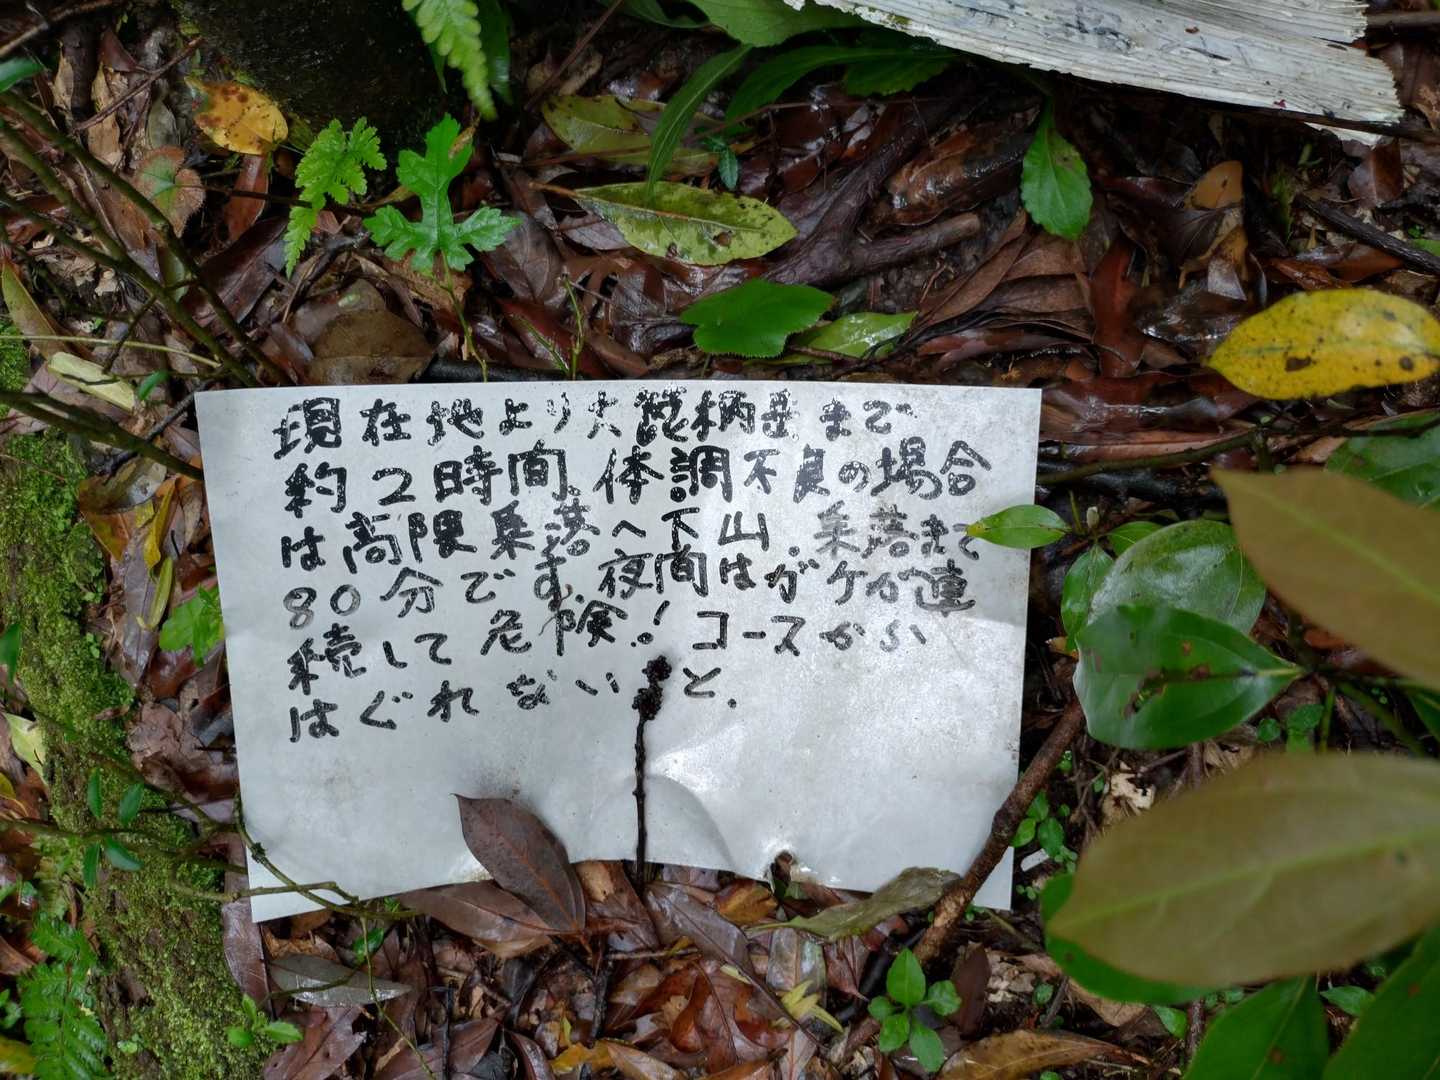 現在地より大箆柄岳まで
約2時間.体調不良の場合
は高隈集落へ下山.集落まで
80分です.夜間はガケが連
続して危険!コースから
はぐれないこと.